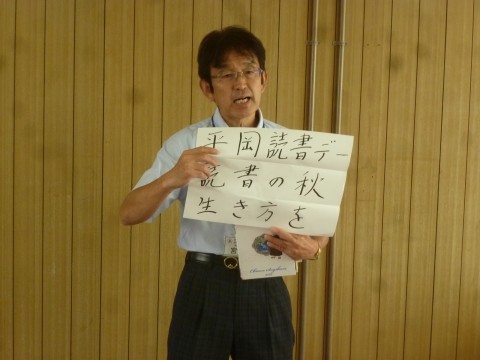 平岡読書デー
読書の秋
生き方を